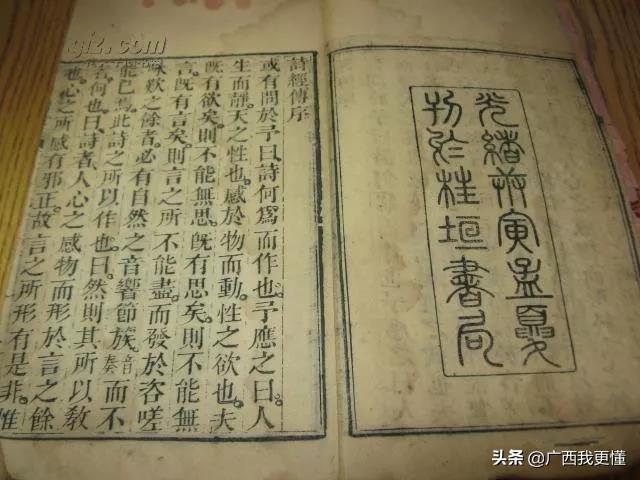 光緒庚寅孟夏
刊於桂垣書局
詩經傳序
或有問於予曰。詩何爲而作也。予應之曰。人
生而靜。天之性也。感於物而動。性之欲也。夫
既有欲矣。則不能無思。既有思矣。則不能無
言。既有言矣。則言之所不能盡。而發於咨嗟
咏歎之餘者。必有自然之音響節族。音奏而不
能已焉。此詩之所以作也。曰。然則其所以教
者。何也。曰。詩者。人心之感物而形於言之餘
也。心之所感有邪正。故言之所形有是非。惟
头条 @广西我更懂